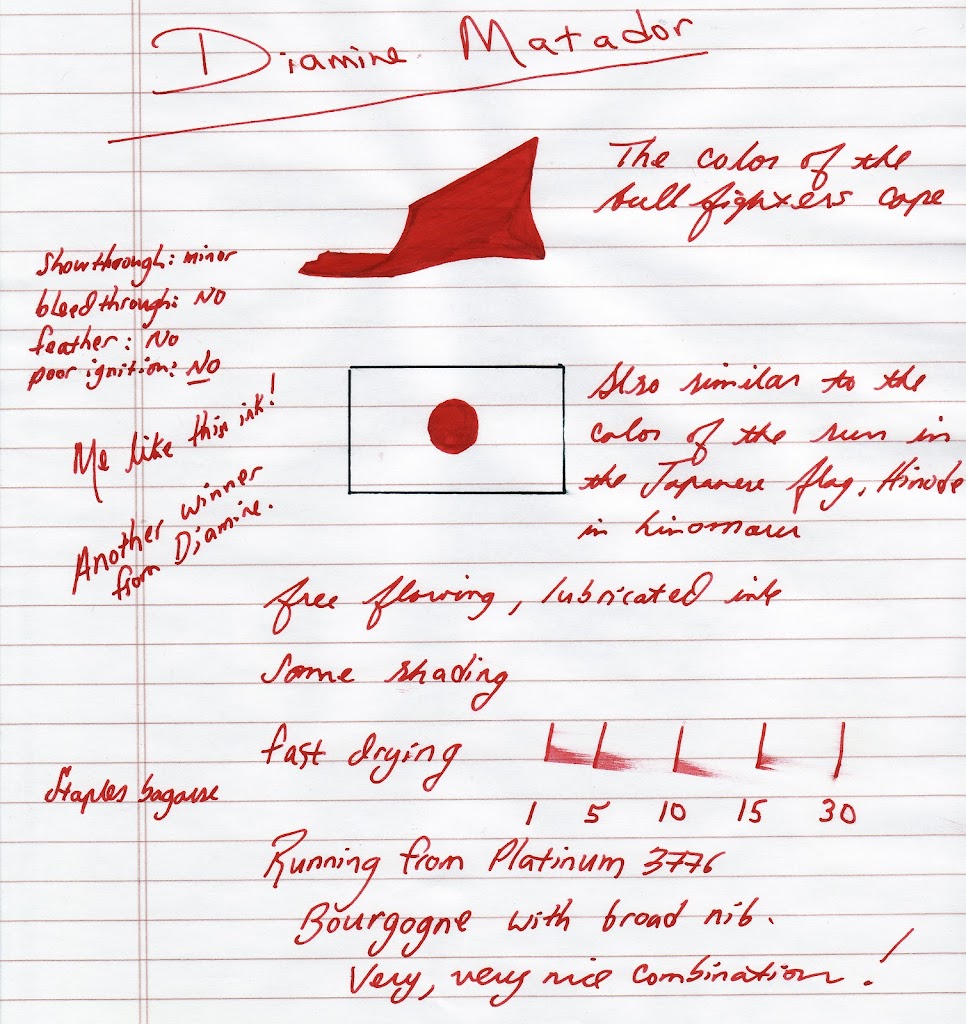 Diamine Matador
The color of the
bull fighters cape
Showthrough: minor
bleedthrough: No
feather: No
poor ignition: No
Me like this ink!
Another winner
from Diamine.
Also similar to the
color of the sun in
the Japanese flag, Hinode
in hinomaru
free flowing, lubricated ink
Some shading
fast drying
1 5 10 15 30
Staples bagasse
Running from Platinum 3776
Bourgogne with broad nib.
Very, very nice combination!